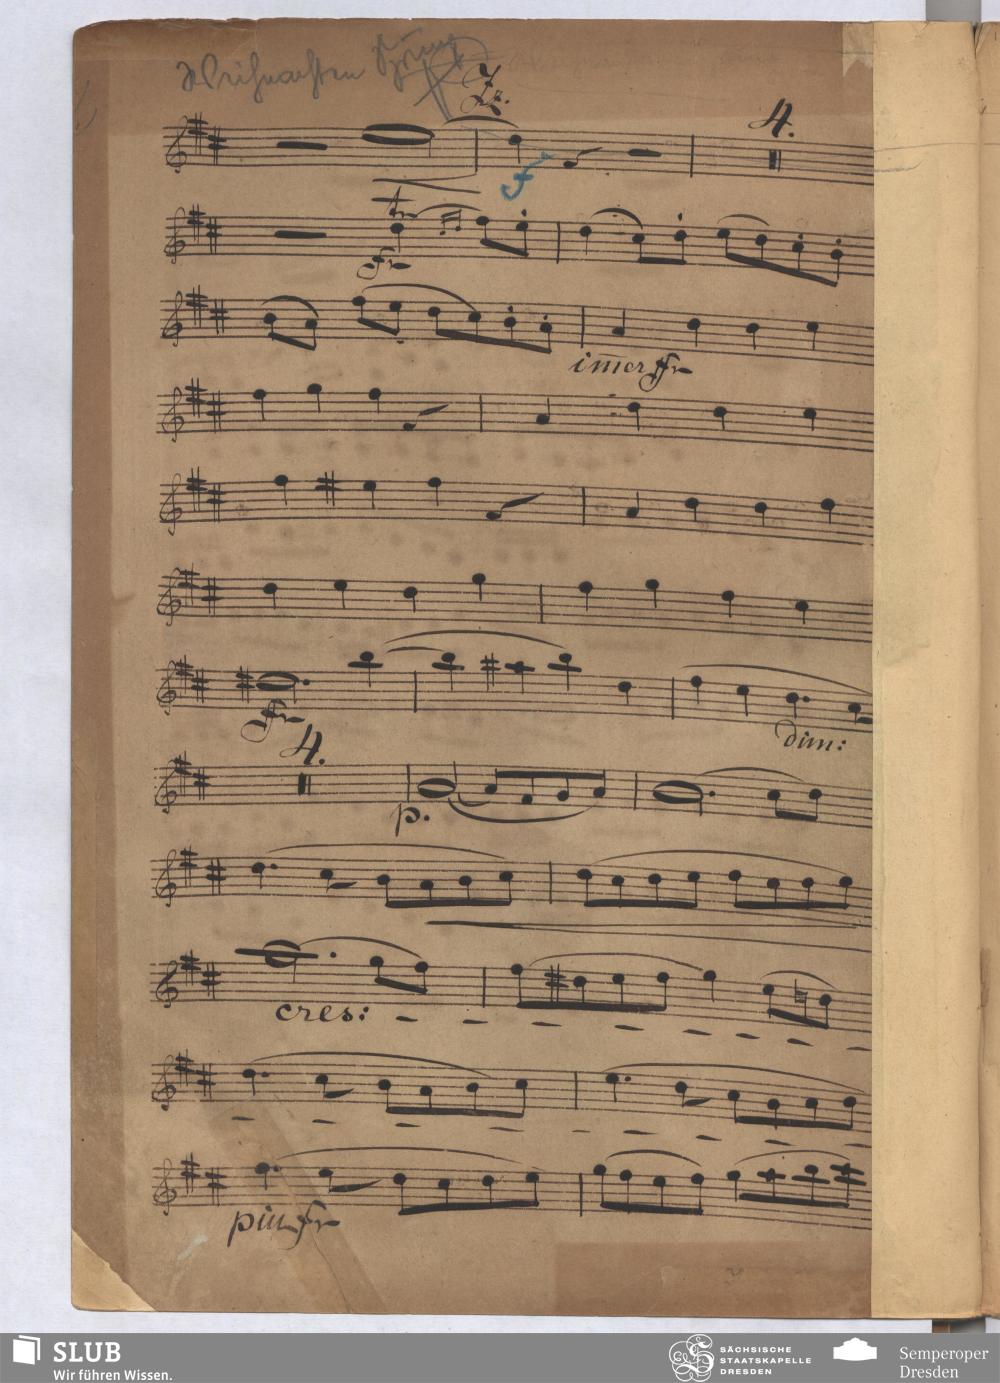 Weihnachten
4.
f
tr
fr
immer fr
fr
dim:
4.
p.
cres:
piu fr
SLUB
Wir führen Wissen.
SÄCHSISCHE
STAATSKAPELLE
DRESDEN
Semperoper
Dresden